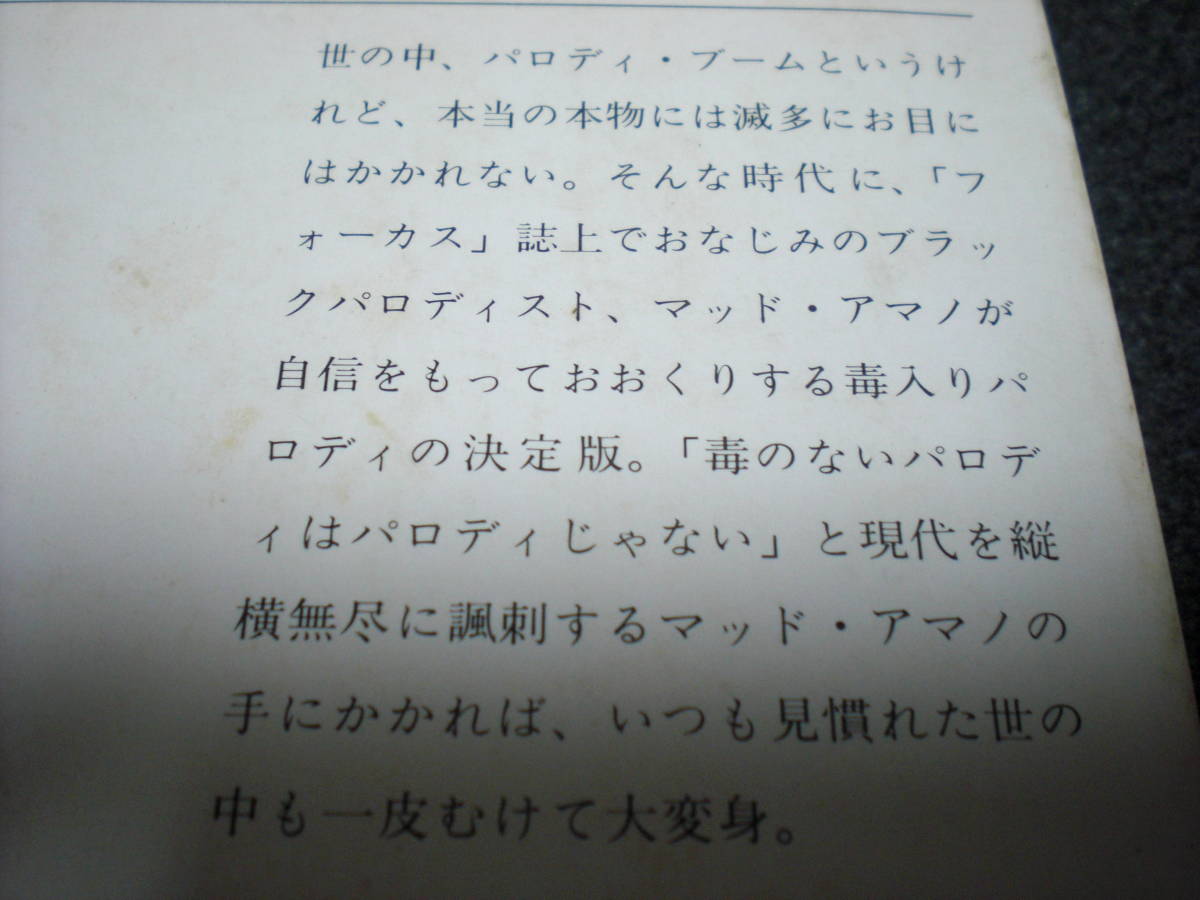 世の中、パロディ・ブームというけ
れど、本当の本物には滅多にお目に
はかかれない。そんな時代に、「フ
ォーカス」誌上でおなじみのブラッ
クパロディスト、マッド・アマノが
自信をもっておおくりする毒入りパ
ロディの決定版。「毒のないパロデ
ィはパロディじゃない」と現代を縦
横無尽に諷刺するマッド・アマノの
手にかかれば、いつも見慣れた世の
中も一皮むけて大変身。